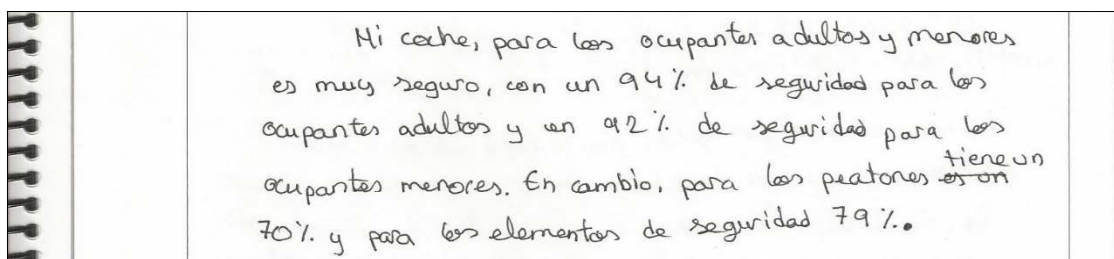 Mi coche, para los ocupantes adultos y menores
es muy seguro, con un 94% de seguridad para los
ocupantes adultos y un 92% de seguridad para los
ocupantes menores. En cambio, para los peatones ~~es un~~ tiene un
70% y para los elementos de seguridad 79%.